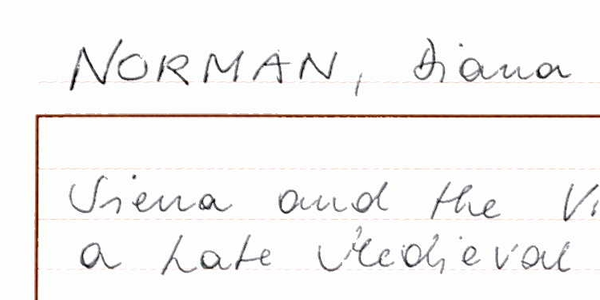 NORMAN, Diana
Siena and the Vi
a Late Medieval